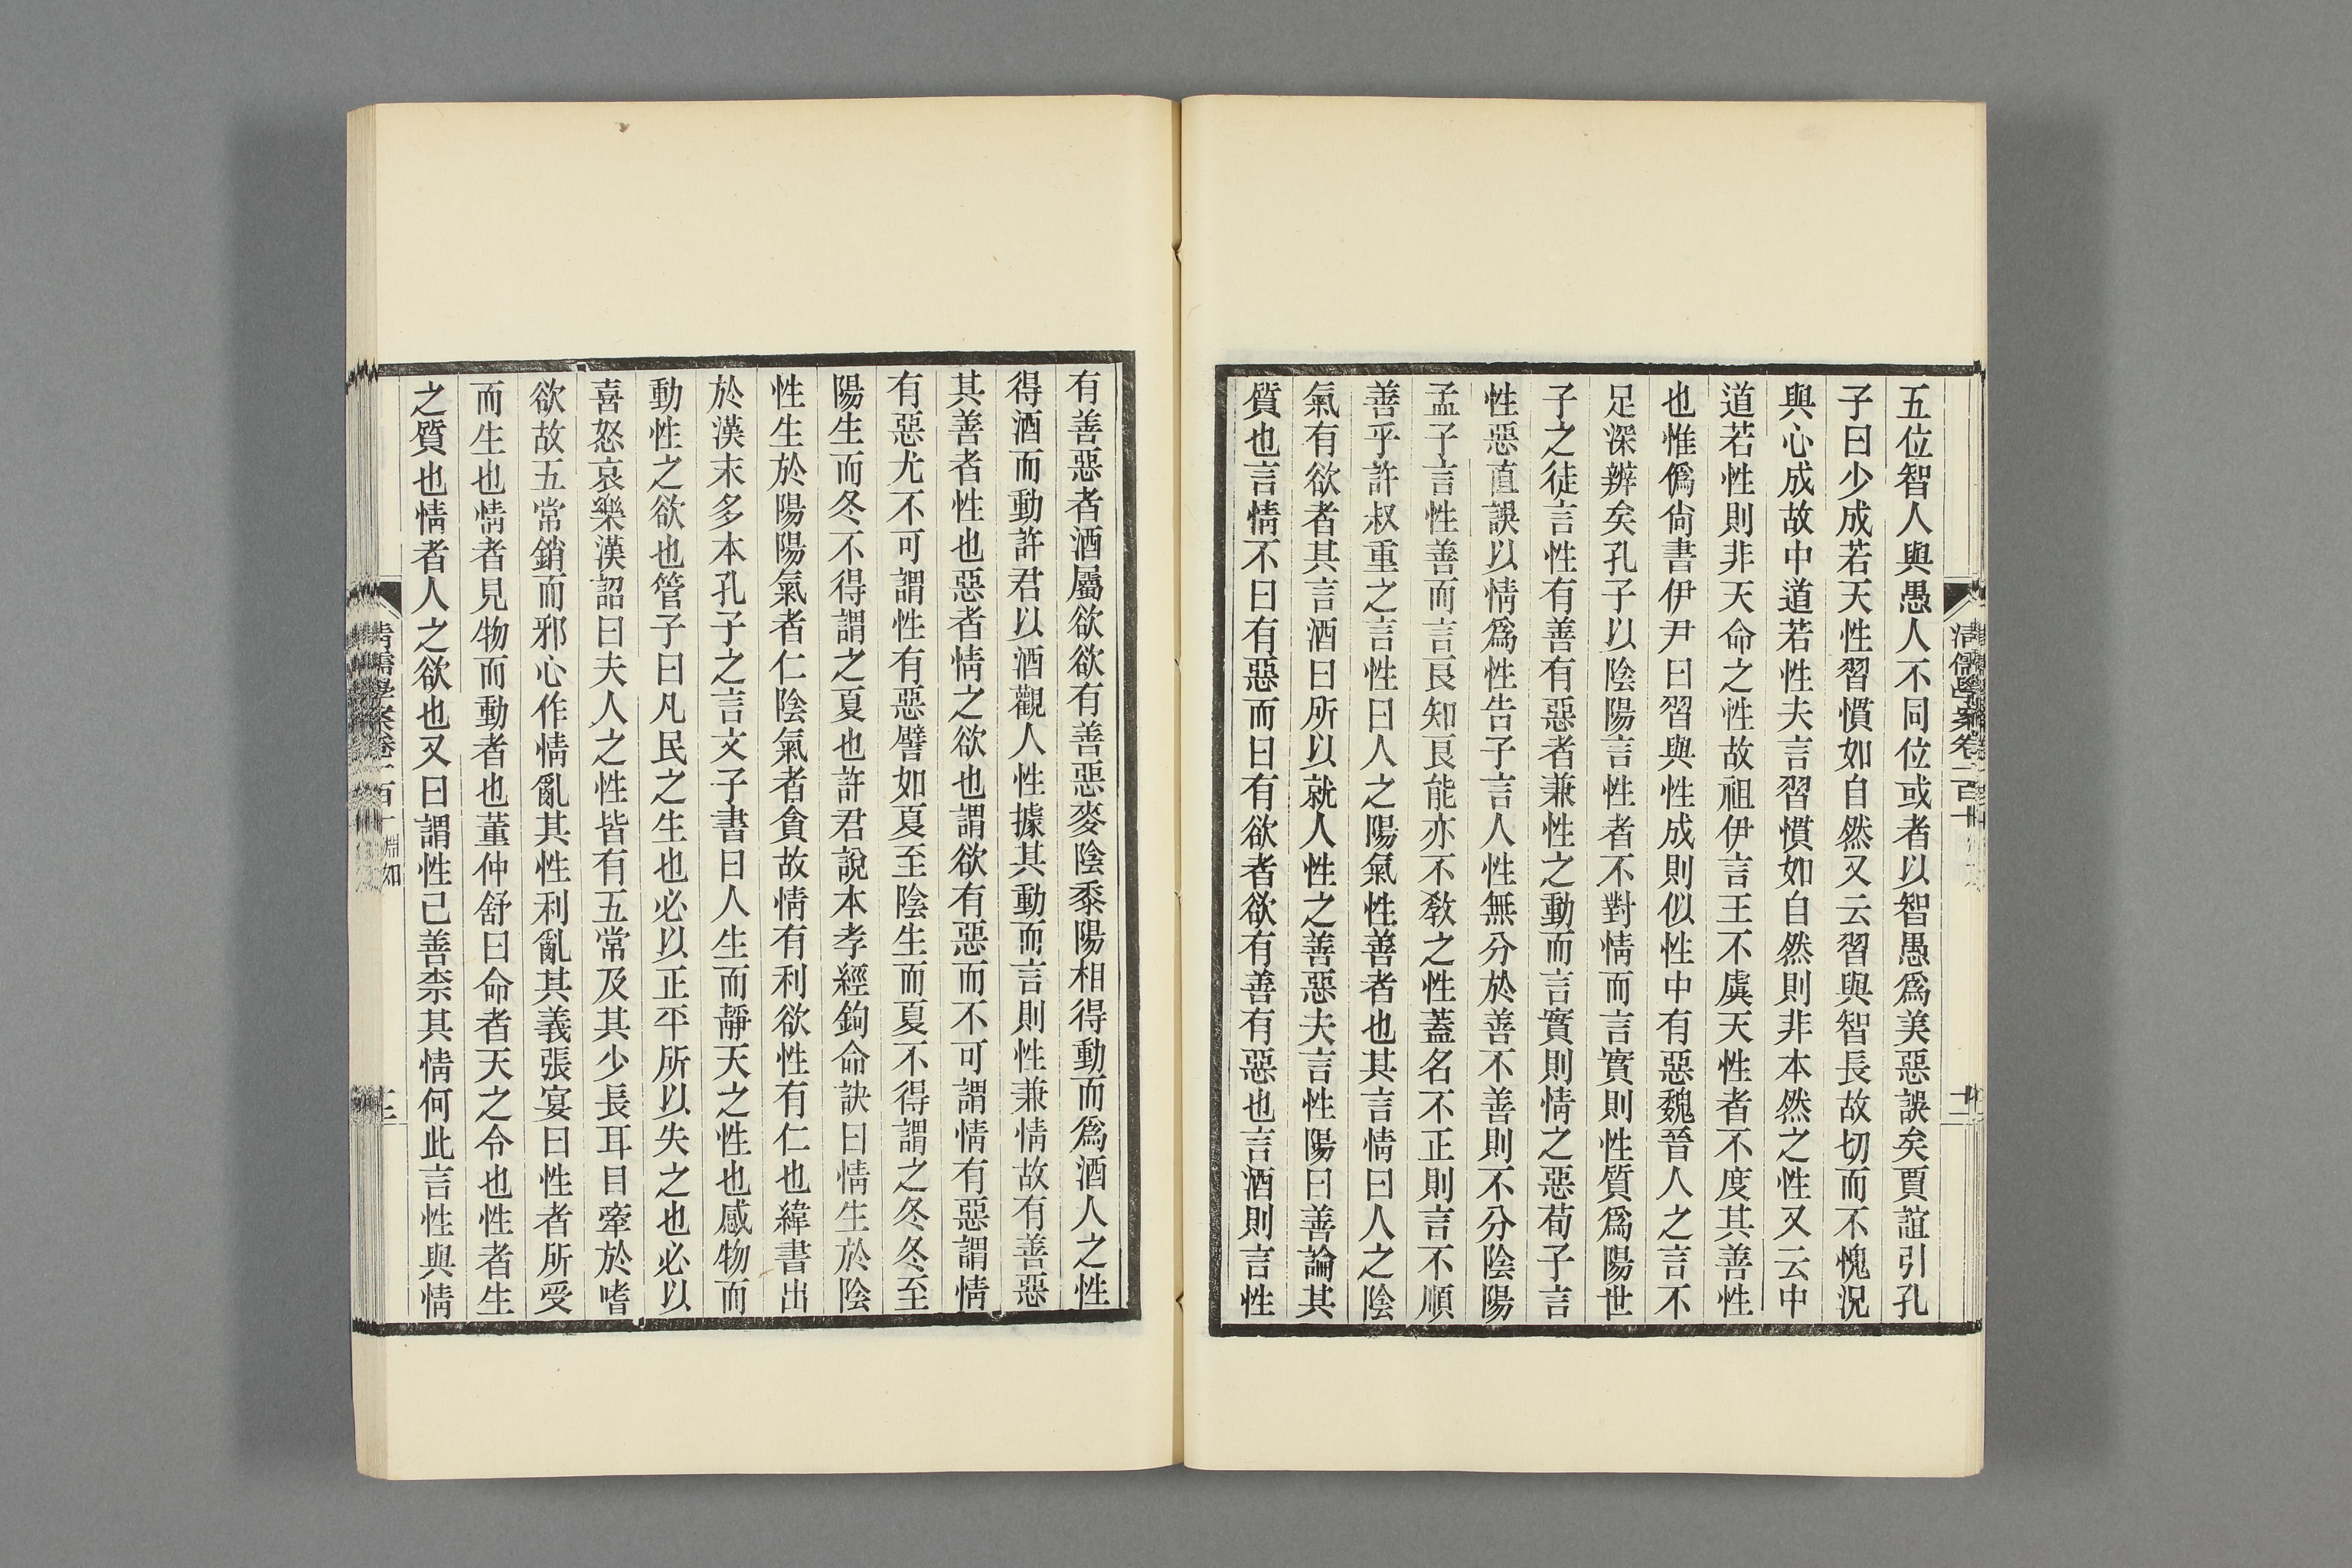 五位智人與愚人不同位或者以智愚爲美惡誤矣賈誼引孔
子曰少成若天性習慣如自然又云習與智長故切而不愧況
與心成故中道若性夫言習慣如自然則非本然之性又云中
道若性則非天命之性故祖伊言王不虞天性者不度其善性
也惟僞尙書伊尹曰習與性成則似性中有惡魏晉人之言不
足深辨矣孔子以陰陽言性者不對情而言實則性質爲陽世
子之徒言性有善有惡者兼性之動而言實則情之惡荀子言
性惡直誤以情爲性告子言人性無分於善不善則不分陰陽
孟子言性善而言良知良能亦不敎之性蓋名不正則言不順
善乎許叔重之言性曰人之陽氣性善者也其言情曰人之陰
氣有欲者其言酒曰所以就人性之善惡夫言性陽曰善論其
質也言情不曰有惡而曰有欲者欲有善有惡也言酒則言性
有善惡者酒屬欲欲有善惡麥陰黍陽相得動而爲酒人之性
得酒而動許君以酒觀人性據其動而言則性兼情故有善惡
其善者性也惡者情之欲也謂欲有惡而不可謂情有惡謂情
有惡尤不可謂性有惡譬如夏至陰生而夏不得謂之冬冬至
陽生而冬不得謂之夏也許君說本孝經鉤命訣曰情生於陰
性生於陽陽氣者仁陰氣者貪故情有利欲性有仁也緯書出
於漢末多本孔子之言文子書曰人生而靜天之性也感物而
動性之欲也管子曰凡民之生也必以正平所以失之也必以
喜怒哀樂漢詔曰夫人之性皆有五常及其少長耳目牽於嗜
欲故五常銷而邪心作情亂其性利亂其義張宴曰性者所受
而生也情者見物而動者也董仲舒曰命者天之令也性者生
之質也情者人之欲也又曰謂性已善柰其情何此言性與情